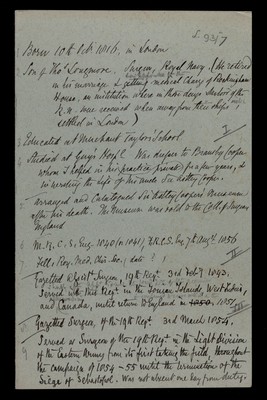 I 93/7
Born 10th Oct. 1816, in London
Son of Thos. Longmore, Surgeon, Royal Navy. (He retired
on his marriage & getting medical charge of Buckingham
House, an institution where in those days Seamen of the
R.N. were received when away from their ships
settled in London)
Educated at Merchant Taylors School
Studied at Guy's Hospl. Was dresser to Bransby Cooper
whom I helped in his practice for a few years, &
in wording the life of his uncle Sir Astley Cooper.
arranged and Catalogued Sir Astley Cooper's Museum
after his death. The Museum was sold to the Coll. of Surgeons
England
M.R.C.S. Eng. 1840 (or 1841) F.R.C.S. Eng. 7th Augt. 1856
Fell. Roy. Med. Chir. Soc.; date?
III
Gazetted Assist. Surgeon, 19th Regt. 3rd Feby. 1843.
Served with this Regt. in the Ionian Islands, West Indies,
and Canada, until return to England in 1850, 1851
Gazetted Surgeon, of the 19th Regt. 3rd March 1854.
Served as Surgeon of the 19th Regt. in the Light Division
of the Eastern Army from its first taking the field, throughout
the campaign of 1854-55 until the termination of the
Siege of Sebastopol. Was not absent one day from duty.